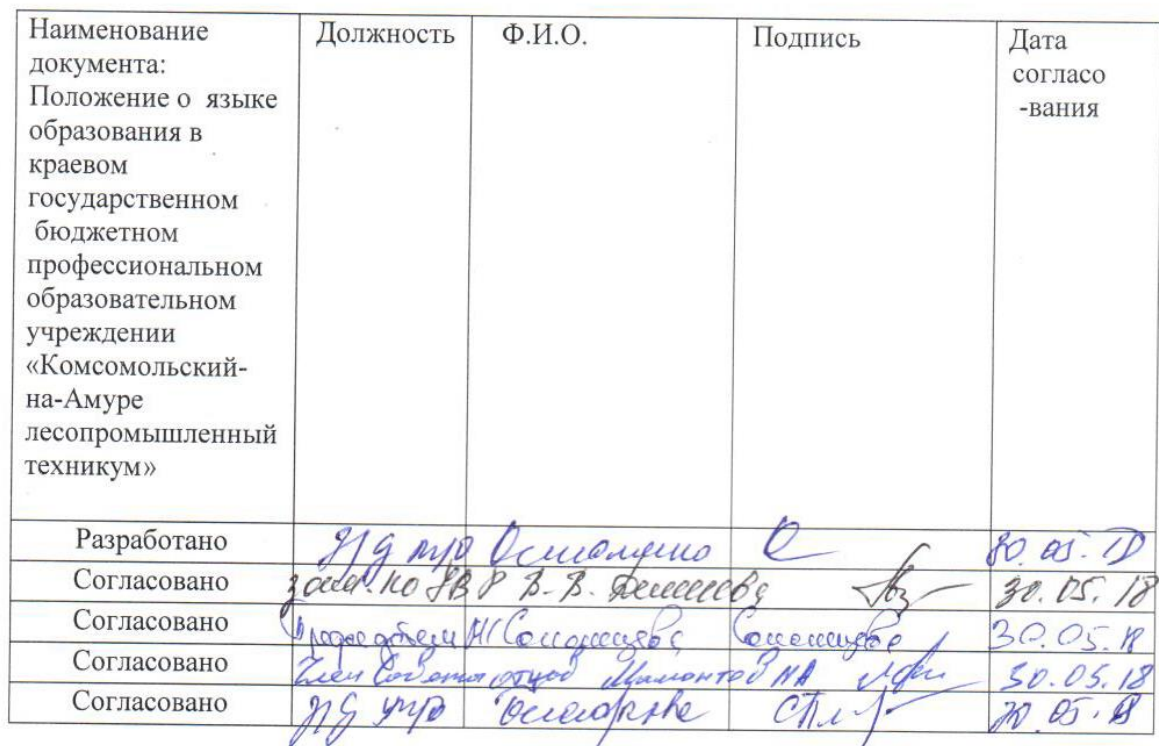 Наименование
документа:
Положение о языке
образования в
краевом
государственном
бюджетном
профессиональном
образовательном
учреждении
«Комсомольский-
на-Амуре
лесопромышленный
техникум»
Должность
Ф.И.О.
Подпись
Дата
согласо
-вания
Разработано 30.05.18
Согласовано зам. по В.В. 30.05.18
Согласовано 30.05.18
Согласовано Член Совета отцов Мамонтов НА 30.05.18
Согласовано 30.05.18